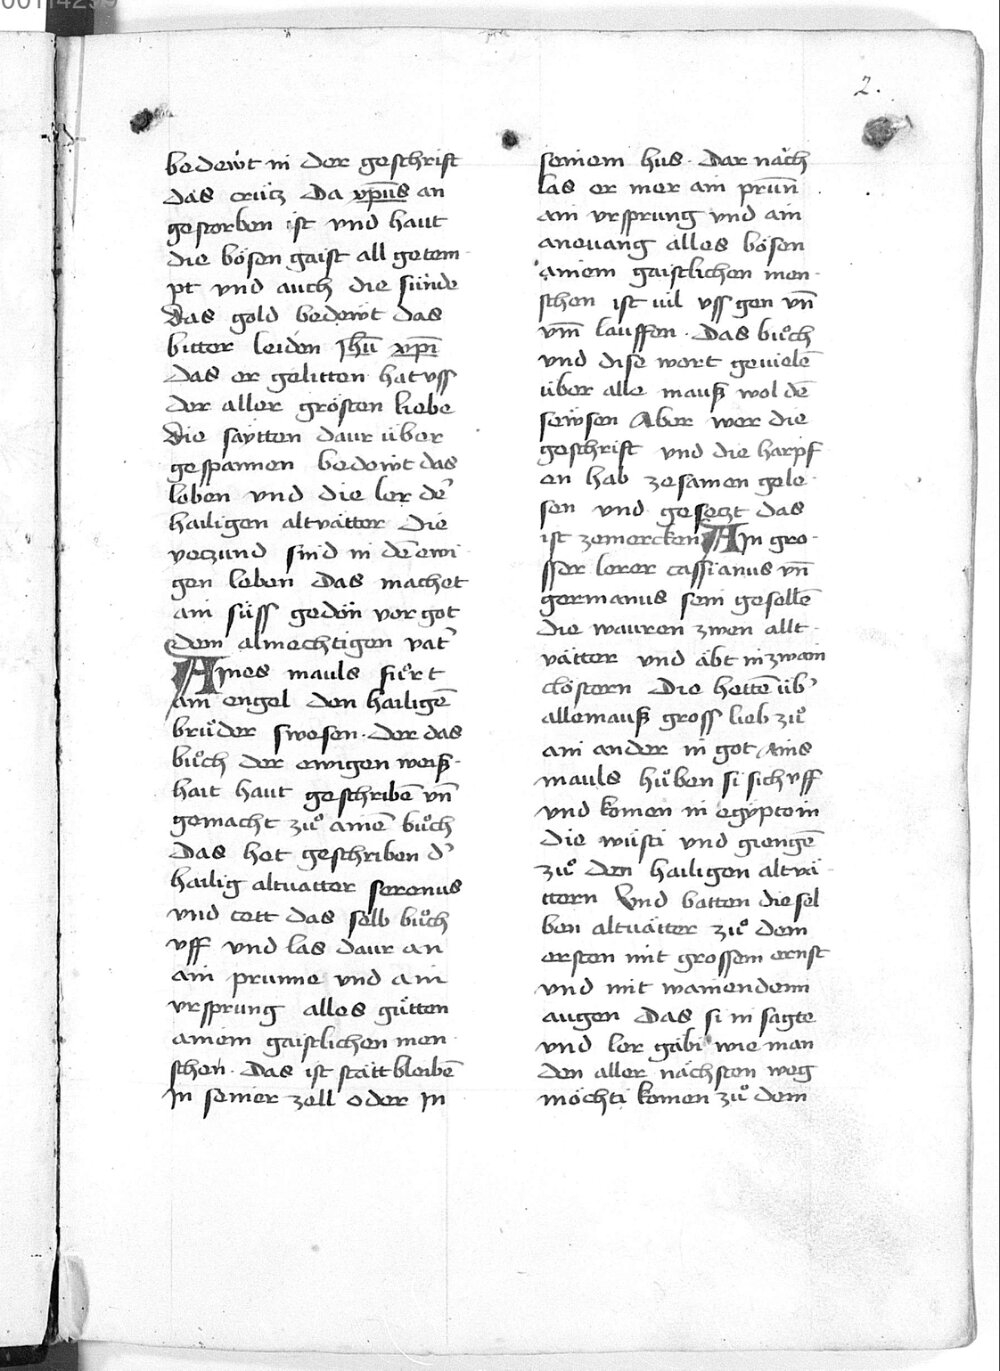 00114299
2.
bedewt in der geschrift
das crütz Da xp̄us an
gestorben ist vnd haut
die bösen gaist all getem
pt vnd auch die sünde
Das gold bedewt das
bitter leiden Jhū xp̄i
das er gelitten hat vss
der aller grösten liebe
Die saytten daur über
gespannen bedewt das
loben vnd die ler de᷑
hailigen altvätter die
yetzund sind in de᷑ ewi
gen leben das machet
ain süss gedön vor got
dem almechtigen vat᷑
Aines mauls fuͦrt
ain engel den hailigē
bruͦder swesen. der das
buͦch der ewigen weiſʒ
hait haut geschribē vn̄
gemacht zuͦ ainē buͦch
Das het geschriben d᷑
hailig altuatter serenus
vnd tett das selb buͦch
vff vnd las daur an
ain prunne vnd ain
vrsprung alles guͦtten
ainem gaistlichen men
schen. Das ist stätt bleibē
In seiner zell oder In
seinem hus. Dar näch
las er mer ain prun̄
ain vrsprung vnd ain
aneuang alles bösen
ainem gaistlichen men
schen ist uil vss gen vn̄
vm̄ lauffen. Das buͦch
vnd dise wort geuielē
über alle mauſʒ wol dē
sewsen Aber wer die
geschrift vnd die harpf
en hab zesamen gele
sen vnd gesetzt das
ist zemercken Ain gro
sser lerer cassianus vn̄
germanus sein gesellē
die wauren zwen allt
vätter vnd äbt in zwain
clöstern Die hettē üb᷑
alle mauſʒ gross lieb zuͦ
ain ander in got Ains
mauls huͦben si sich vff
vnd komen in egypto in
die wüsti vnd giengē
zuͦ den hailigen altuä
ttern Vnd batten die sel
ben altuätter zuͦ dem
ersten mit grossem ernst
vnd mit wainendem
augen Das si in sagte
vnd ler gäbi wie man
den aller nächsten weg
möchti komen zuͦ dem